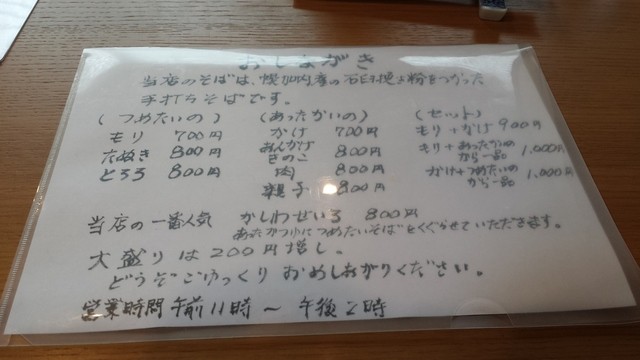 おしながき
当店のそばは、幌加内産の石臼挽き粉をつかった
手打ちそばです。
(つめたいの) (あったかいの) (セット)
もり 700円 かけ 700円 もり+かけ 900円
たぬき 800円 あんかけきのこ 800円 もり+あったかのから一品 1,000円
とろろ 800円 肉 800円 かけ+つめたいのから一品 1,000円
親子 800円
当店の一番人気 かしわせいろ 800円
につめたいそばをくぐらせていただきます。
大盛りは200円増し。
どうぞごゆっくりおめしあがりください。
営業時間 午前11時~午後2時